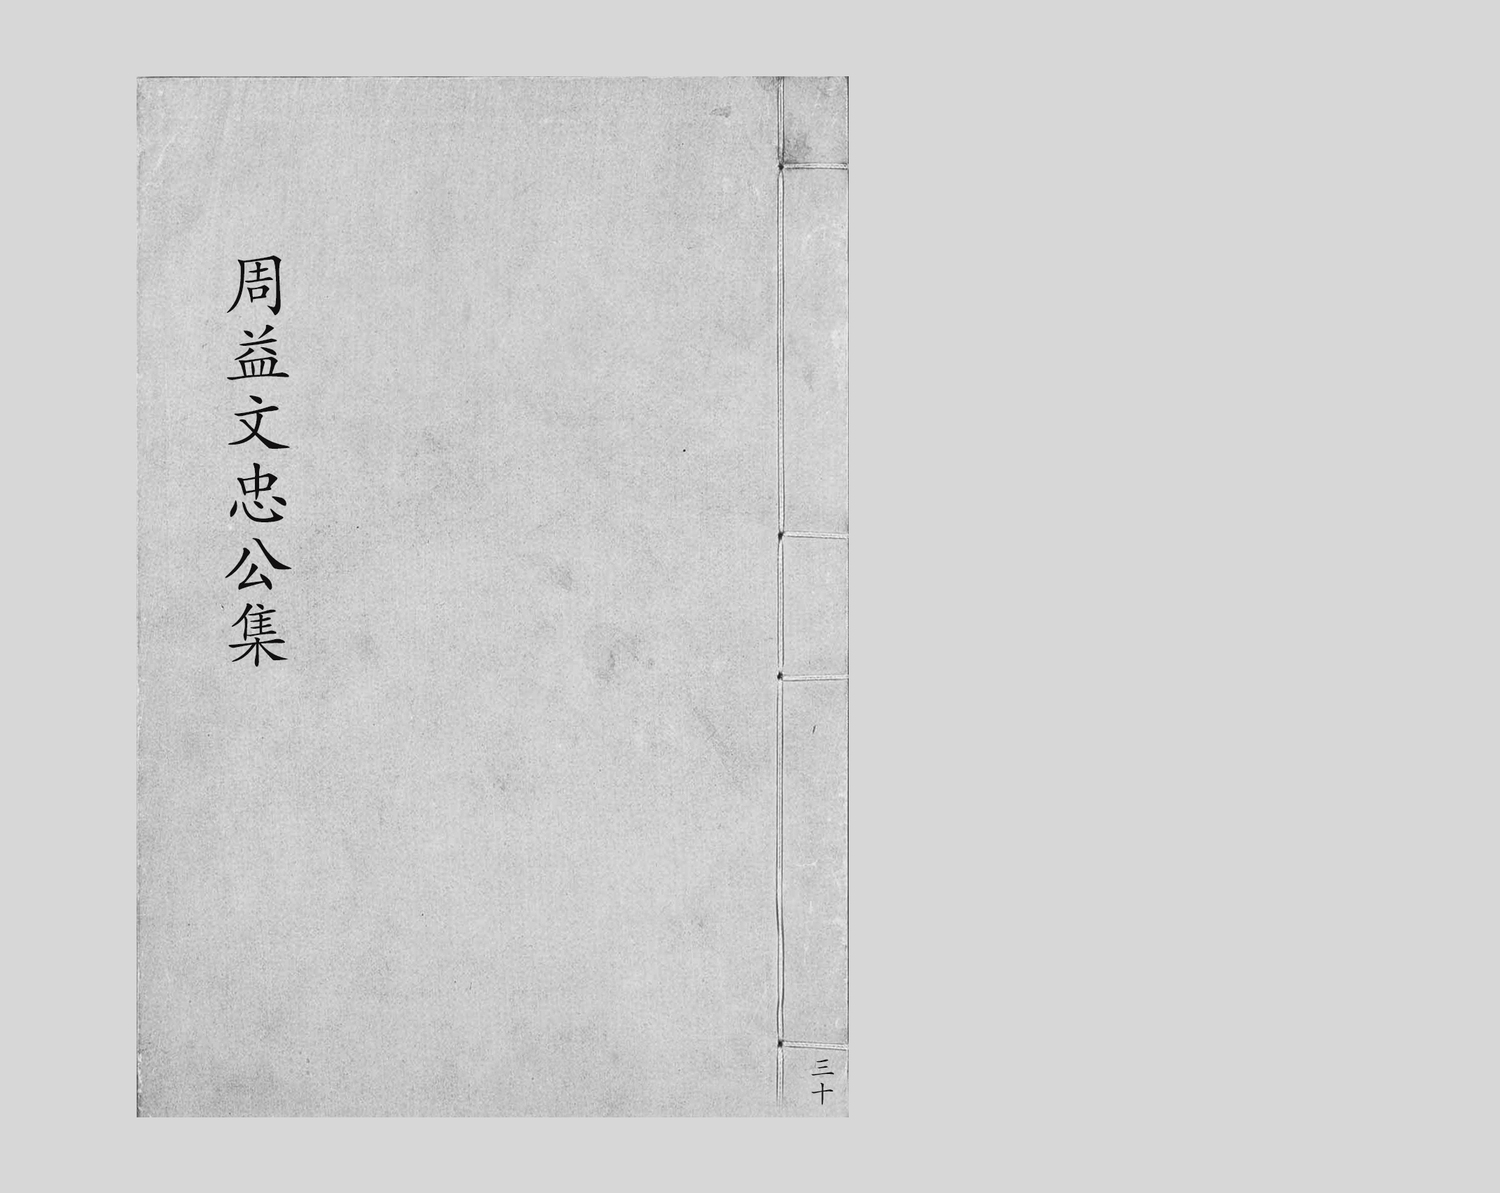 周益文忠公集
三十